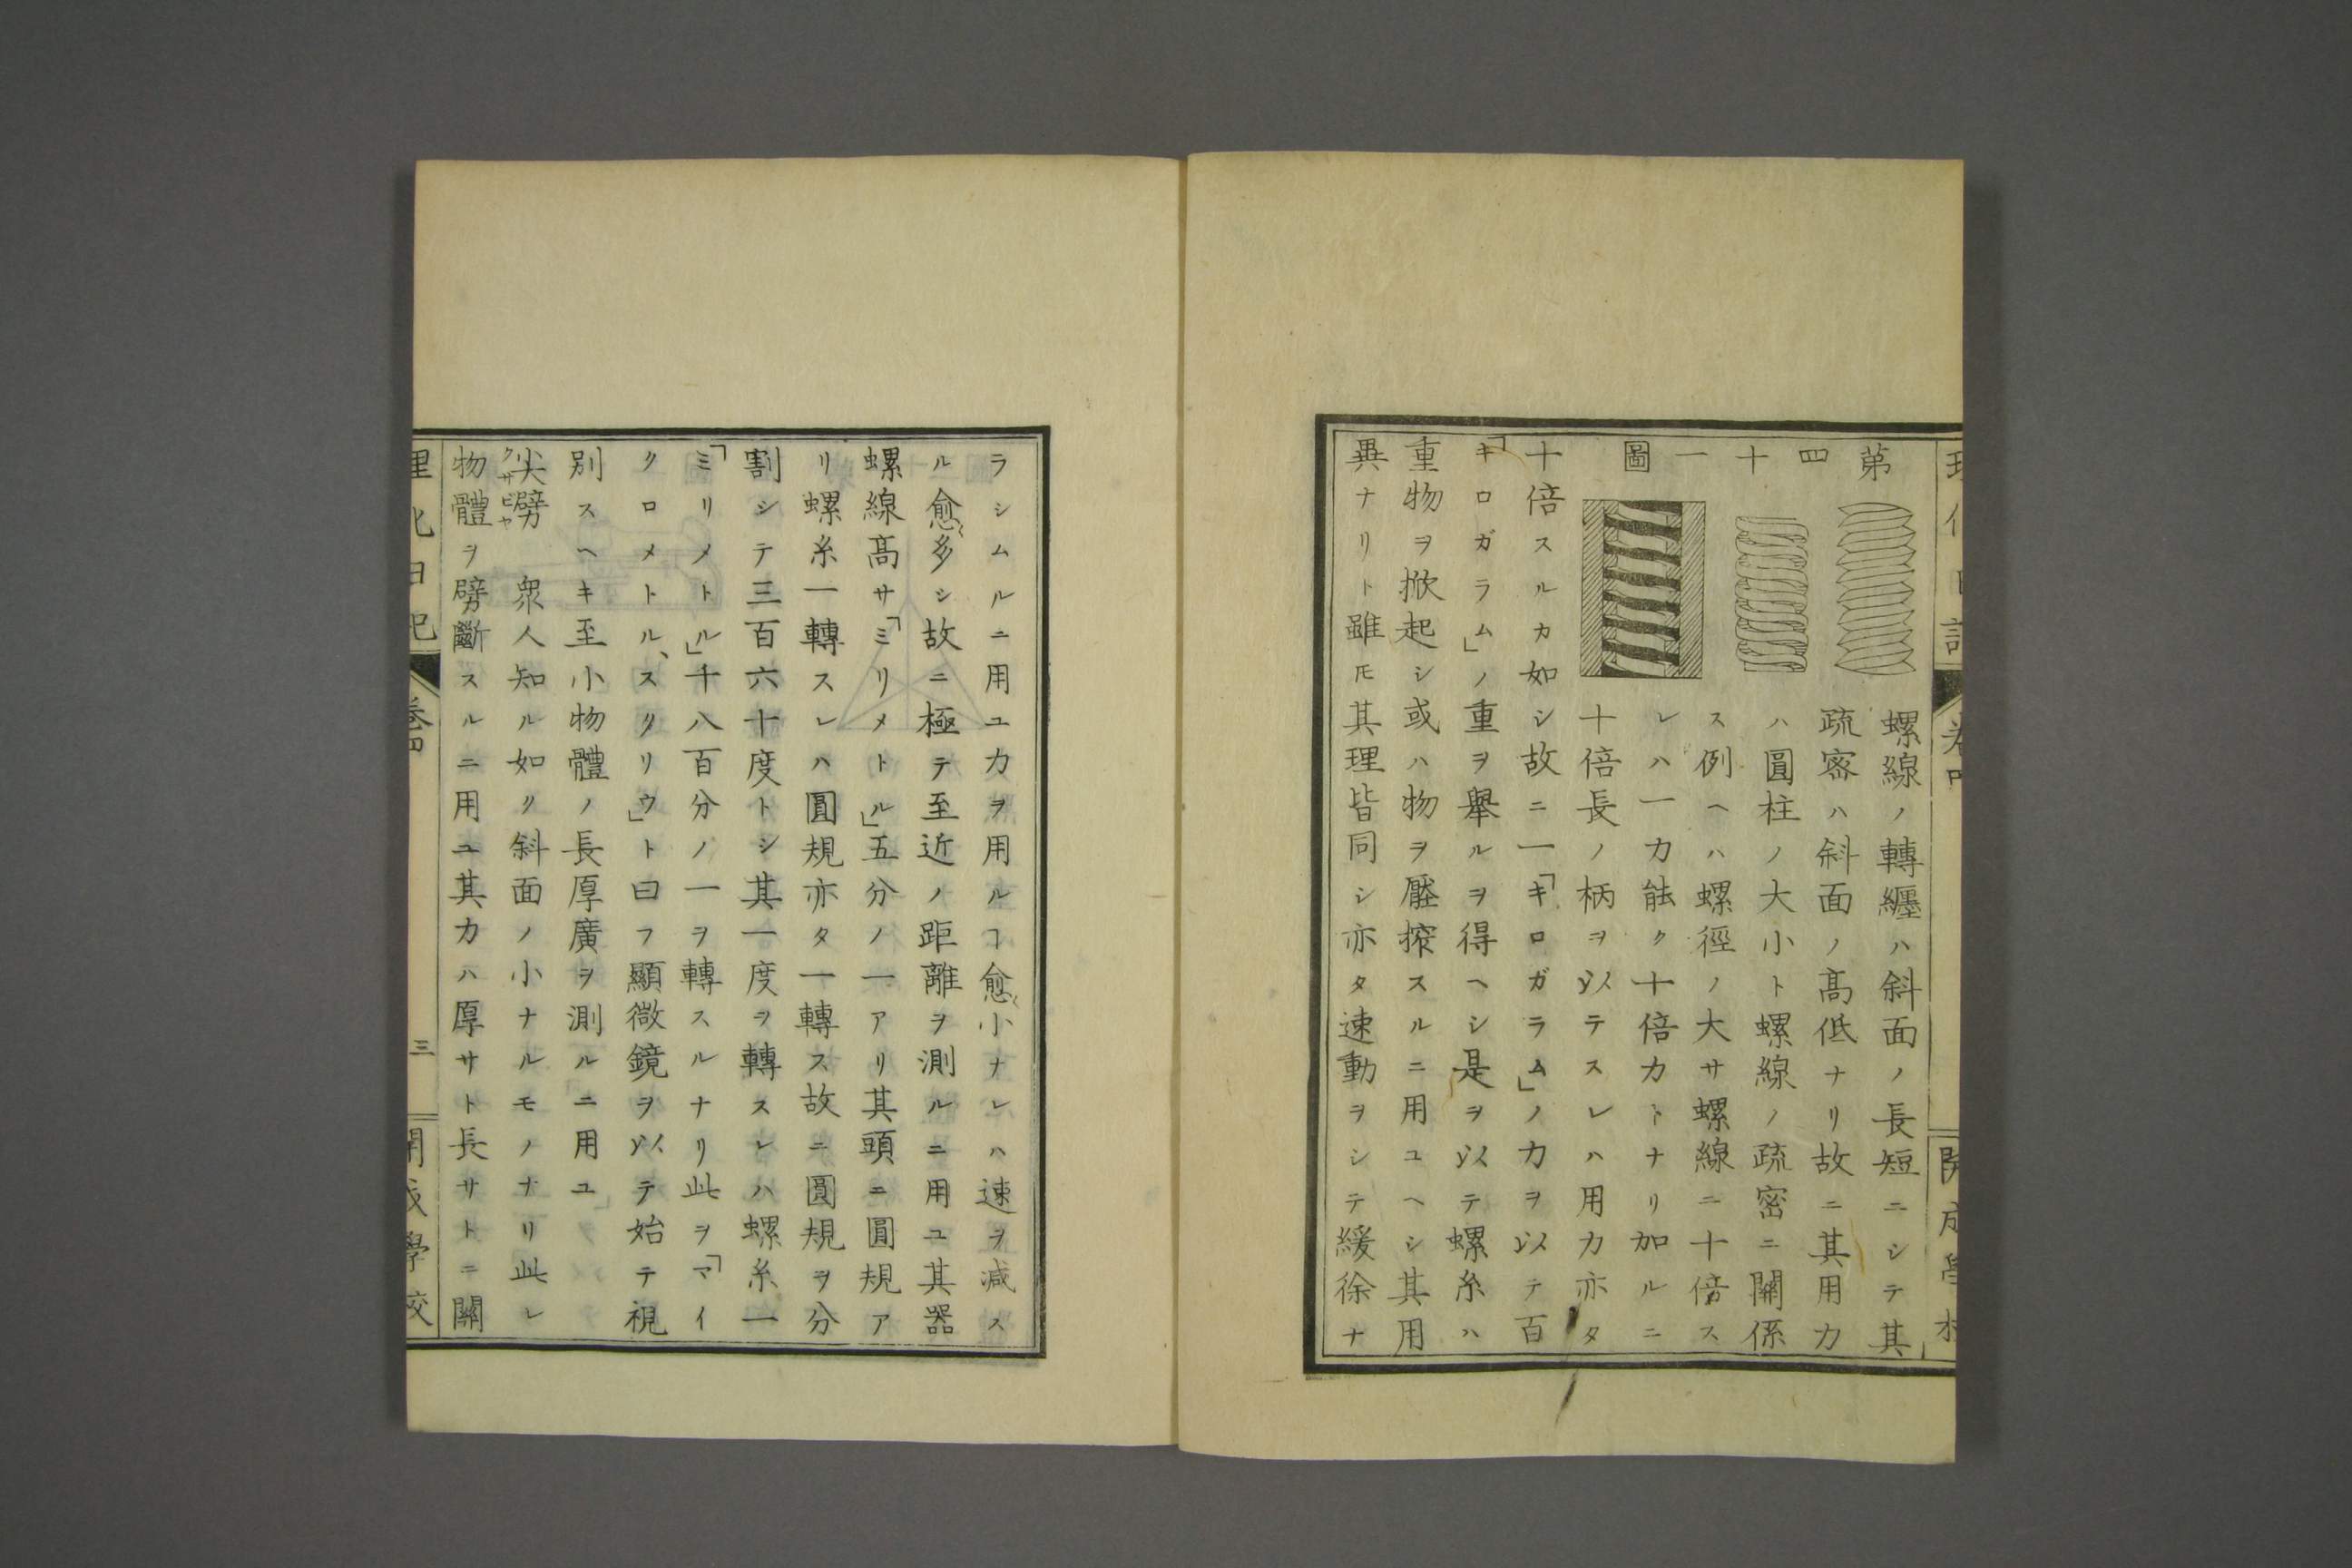 第四十一圖
螺線ノ轉纏ハ斜面ノ長短ニシテ其
疏密ハ斜面ノ髙低ナリ故ニ其用力
ハ圓柱ノ大小ト螺線ノ疏密ニ關係
ス例ヘハ螺徑ノ大サ螺線ニ十倍ス
レハ一力能ク十倍力トナリ加ルニ
十倍長ノ柄ヲ以テスレハ用力亦タ
十倍スルカ如シ故ニ一「キロガラム」ノ力ヲ以テ百
「キロガラム」ノ重ヲ舉ルヲ得ヘシ是ヲ以テ螺糸ハ
重物ヲ掀起シ或ハ物ヲ壓搾スルニ用ユヘシ其用
異ナリト雖𪜈其理皆同シ亦タ速動ヲシテ緩徐ナ
ラシムルニ用ユ力ヲ用ルヿ愈〻小ナレハ速ヲ减ス
ル愈〻多シ故ニ極テ至近ノ距離ヲ測ルニ用ユ其器
螺線髙サ「ミリメトル」五分ノ一アリ其頭ニ圓規ア
リ螺糸一轉スレハ圓規亦タ一轉ス故ニ圓規ヲ分
割シテ三百六十度トシ其一度ヲ轉スレハ螺糸一
「ミリメトル」千八百分ノ一ヲ轉スルナリ此ヲ「マイ
クロメトル、スクリウ」ト曰フ顯微鏡ヲ以テ始テ視
別スヘキ至小物體ノ長厚廣ヲ測ルニ用ユ
尖劈 衆人知ル如ク斜面ノ小ナルモノナリ此レ
クサビヤ
物體ヲ劈斷スルニ用ユ其力ハ厚サト長サトニ關
理化日記
卷四
三
開成學校